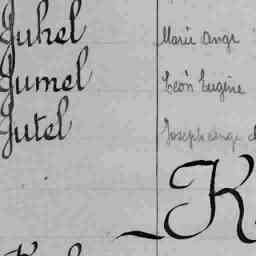 Juhel Marie Ange
Jumel Léon Eugène
Jutel Joseph Ange
K